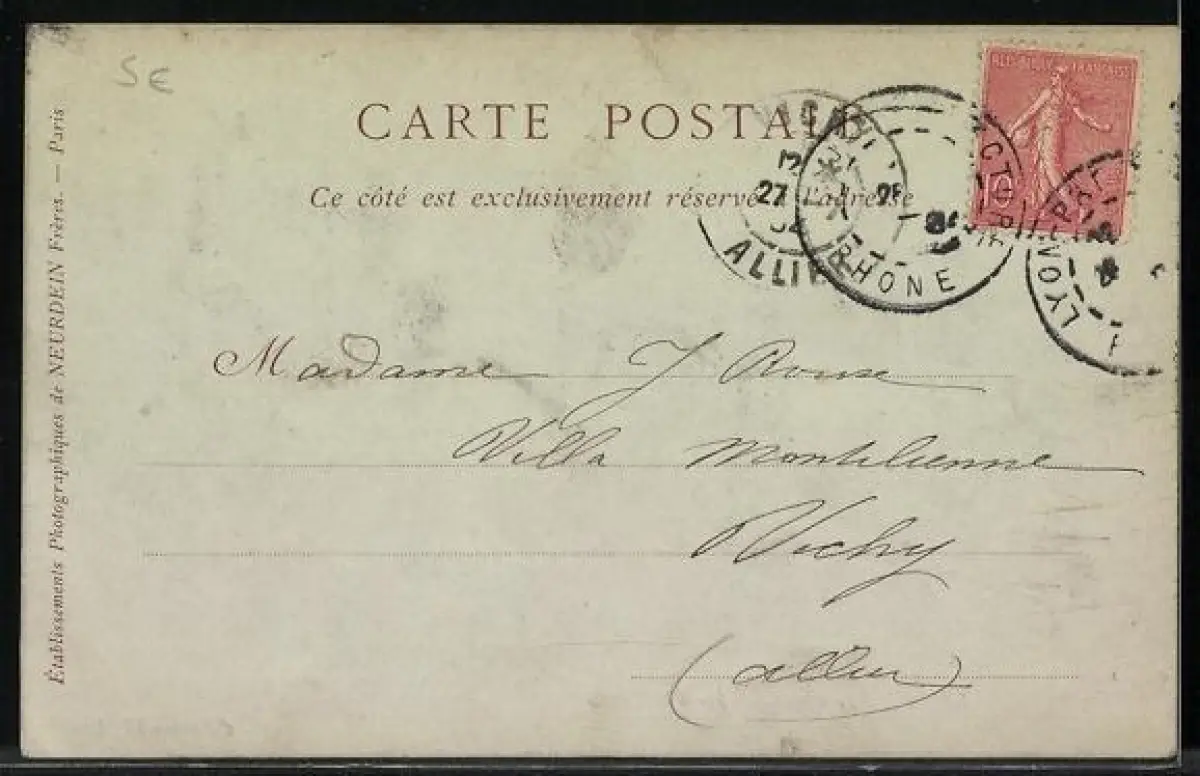 5€
CARTE POSTALE
Ce côté est exclusivement réservé à l'adresse
RÉPUBLIQUE FRANÇAISE
10
27
ALLIER
RHONE
LYON
Madame J Rouse
Villa
Vichy
(Allier)
Établissements Photographiques de NEURDEIN Frères. — Paris